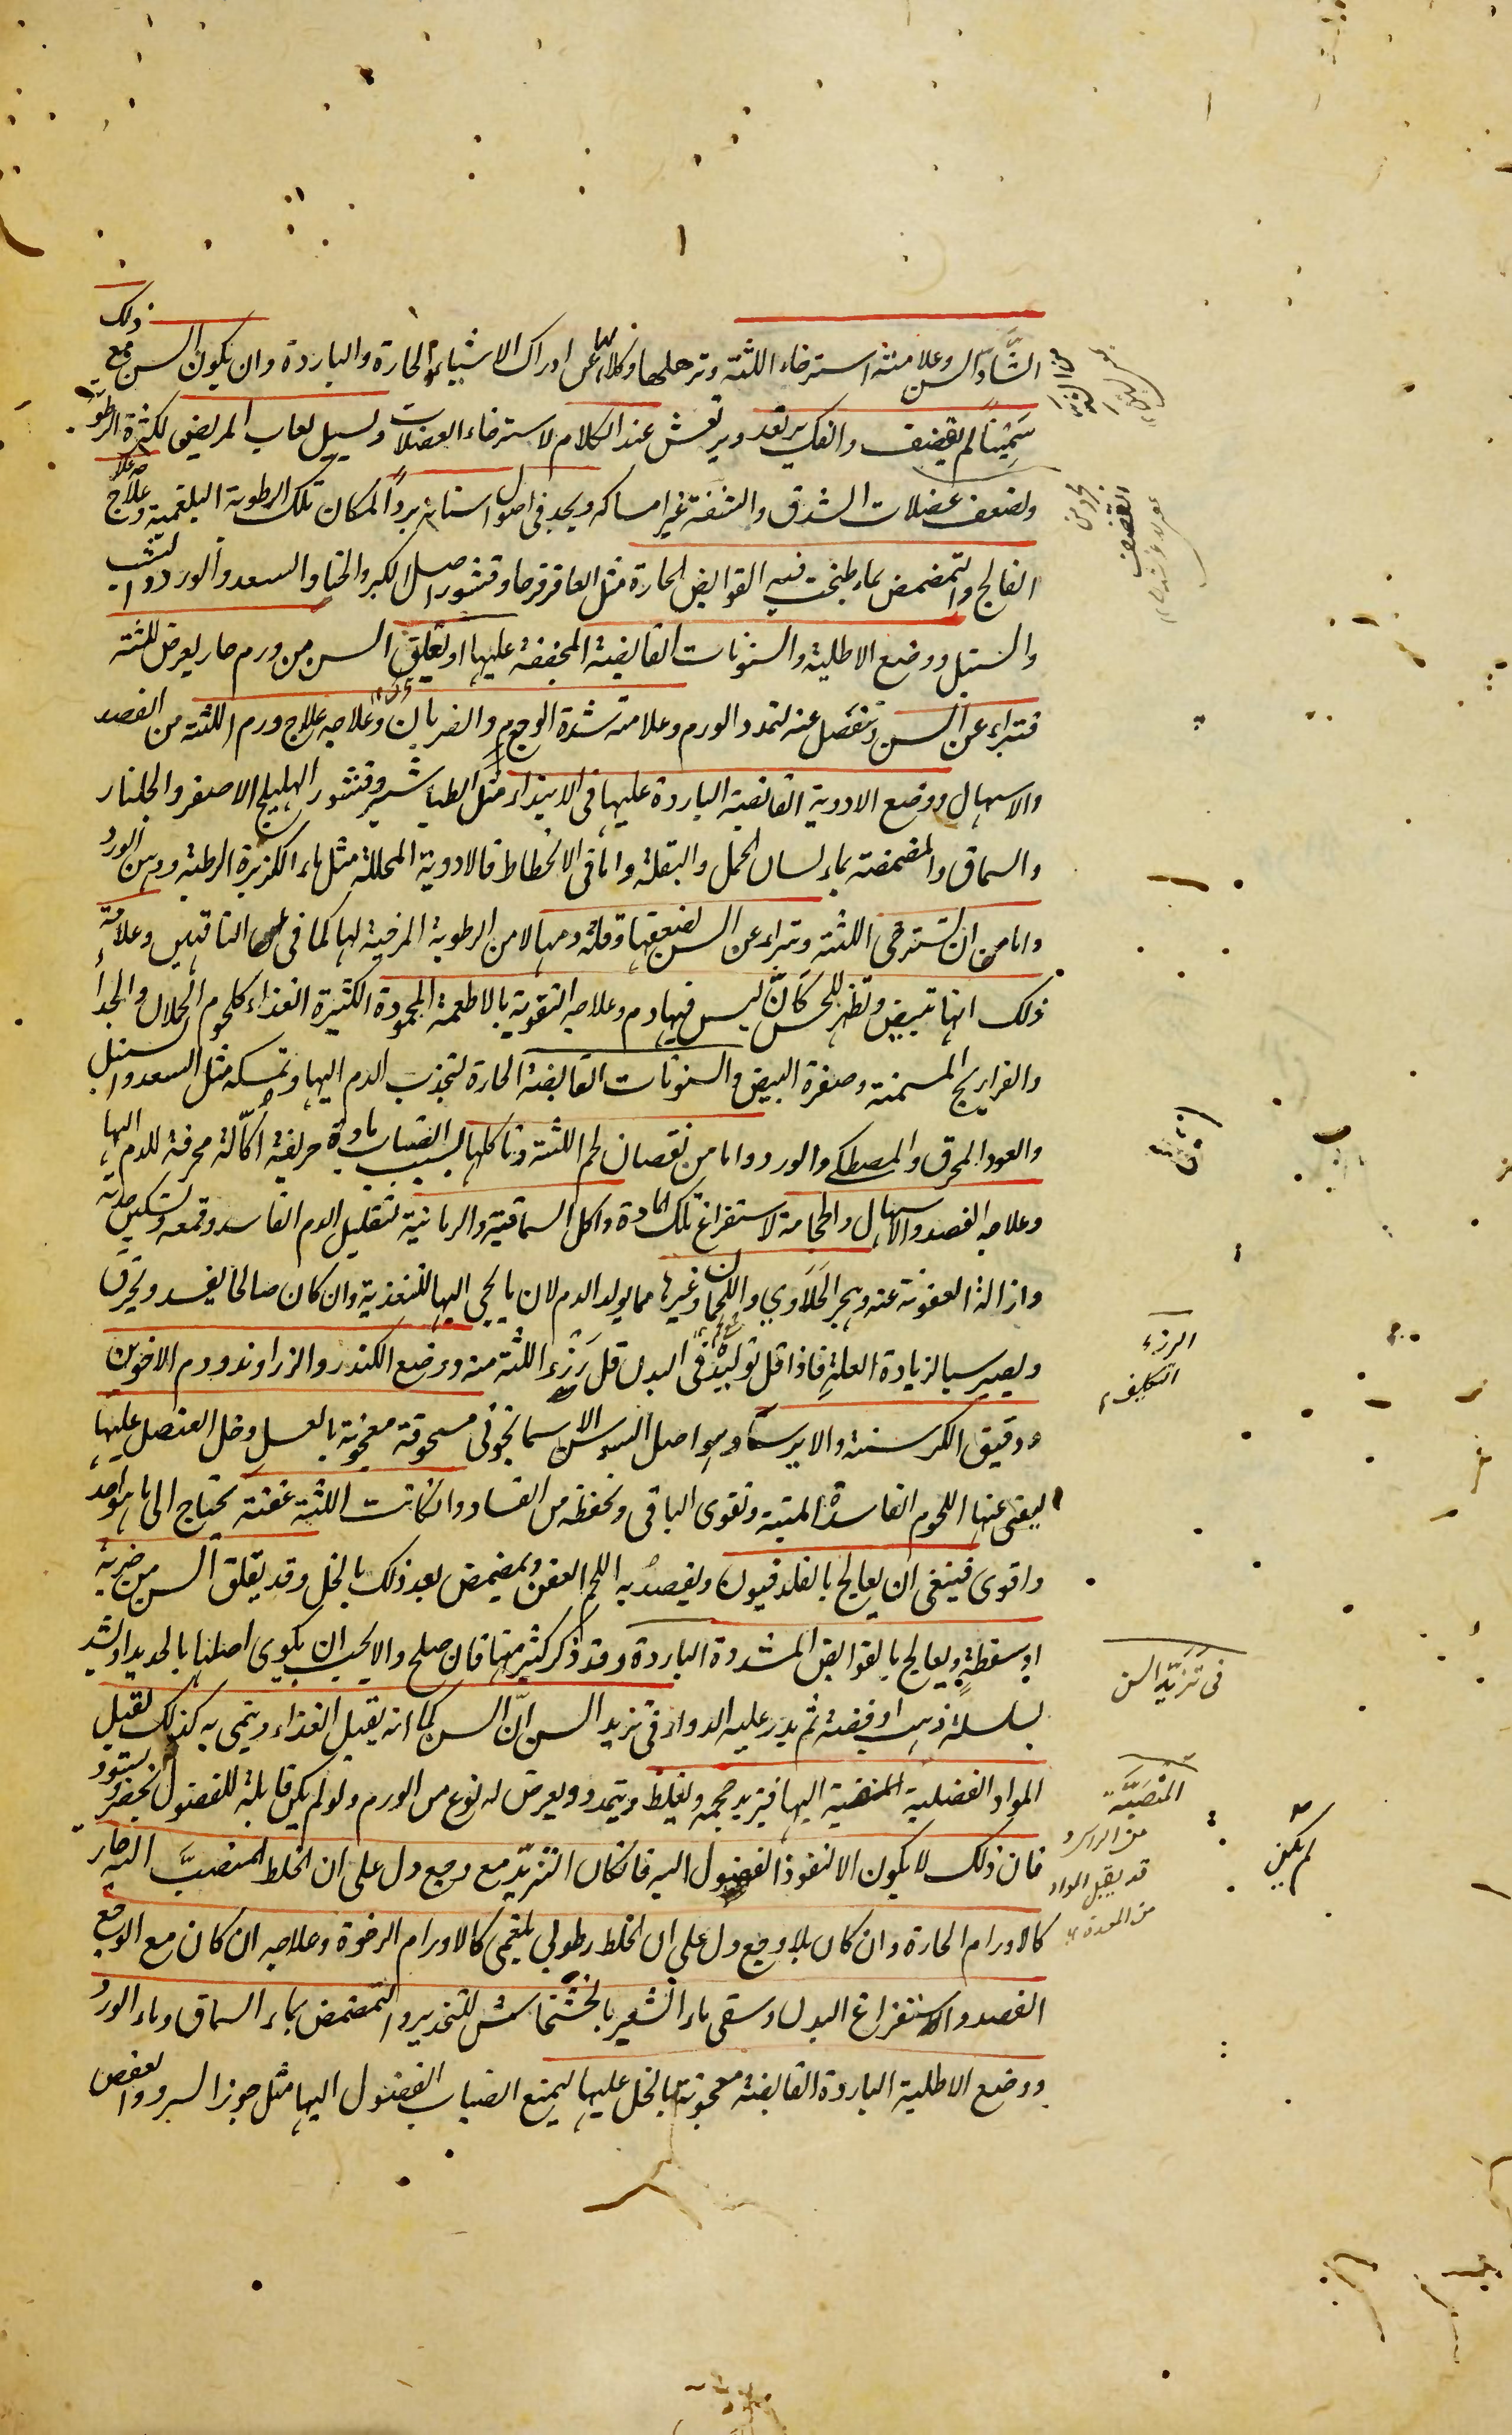 الشادّ السن وعلامته استرخاء اللثة وترهلها وكلالها عن ادراك الاشياء الحارة والباردة وان يكون السن مع ذلك
سمينا لم يقضف والفك يرتعد ويرتعش عند الكلام لاسترخاء العضلات ويسيل لعاب المريض لكثرة الرطوبة
ولضعف عضلات الشدق والشفة عن امساكه ويجد فى اصول اسنانه بردا لمكان تلك الرطوبة البلغمية وعلاجه علاج
الفالج والتمضمض بماء طبخت فيه القوابض الحارة مثل العاقرقرحا وقشور اصل الكبر والحنا والسعد والورد والشب
والسنبل ووضع الاطلية والسنونات القابضة المجففة عليها او يتقلق السن من ورم حار يعرض للثة
فتبراء عن السن وتنفصل عنه لتمدد الورم وعلامته شدة الوجع والضربان وعلاجه علاج ورم اللثة من الفصد
والاسهال ووضع الادوية القابضة الباردة عليها فى الابتداء مثل الطباشير وقشور الهليلج الاصفر والجلنار
والسماق والمضمضة بماء لسان الحمل والبقلة واما فى الانحطاط فالادوية المحللة مثل ماء الكزبرة الرطبة ودهن الورد
واما من ان تسترخى اللثة وتبراء عن السن لضعفها وقلة دمها لا من الرطوبة المرخية لها كما فى الناقهين وعلامة
ذلك انها تبيض وتظهر للحس كأنّ ليس فيها دم وعلاجه التقوية بالاطعمة المحمودة الكثيرة الغذاء كلحوم الحملان والجداء
والفراريج المسمنة وصفرة البيض والسنونات القابضة الحارة لتجذب الدم اليها وتمسكه مثل السعد والسنبل
والعود المحرق والمصطكى والورد واما من نقصان لحم اللثة وتاكلها بسبب انصباب مادة حريفة اكّالة محرقة للدم اليها
وعلاجه الفصد والاسهال والحجامة لاستفراغ تلك المادة واكل السماقية والرمانية لتقليل الدم الفاسد وقمعه وتسكين حدته
وازالة العفونة عنه وهجر الحلاوى واللحمان وغيرها مما يولد الدم لان ما يجى اليها للتغذية وان كان صالحا يفسد ويحرق
ويصير سببا لزيادة العلة فاذا قل توليده فى البدن قل رزء اللثة منه ووضع الكندر والزراوند ودم الاخوين
ودقيق الكرسنة والايرسا وهو اصل السوسن الاسمانجونى مسحوقة معجونة بالعسل وخل العنصل عليها
ليفنى عنها اللحوم الفاسدة الميتة وتقوى الباقى وتحفظه من الفساد وان كانت اللثة عفنة يحتاج الى ما هو احد
واقوى فينبغى ان يعالج بالفلدفيون ويقصد به اللحم العفن ويمضمض بعد ذلك بالخل وقد يتقلق السن من ضربة
او سقطة ويعالج بالقوابض المشددة الباردة وقد ذكر كثير منها فان صلح والا يجب ان يكوى اصلها بالحديد او يشد
بسلسلة ذهب او فضة ثم يدر عليه الدواء فى تزيد السن انّ السن كما انه يقبل الغذاء وينمى به كذلك تقبل
المواد الفضلية المنصبة اليها فيزيد حجمه ويغلظ ويتمدد ويعرض له نوع من الورم ولو لم يكن قابلة للفضول لم تخضر وتسود
فان ذلك لا يكون الا لنفوذ الفضول اليه فان كان التزيّد مع وجع دل على ان الخلط المنصبّ اليه حار
كالاورام الحارة وان كان بلا وجع دل على ان الخلط رطوبى بلغمى كالاورام الرخوة وعلاجه ان كان مع الوجع
الفصد والاستفراغ البدن وسقى ماء الشعير بالخشخاش للتخدير والتمضمض بماء السماق وماء الورد
ووضع الاطلية الباردة القابضة معجونة بالخل عليها ليمنع انصباب الفضول اليها مثل جوز السرو والعفص
القضف
الرزء
التكليف
فى تزيّد السن
المنصبّة
من الراس و
قد يقبل المواد
من المعدة
لم يكن